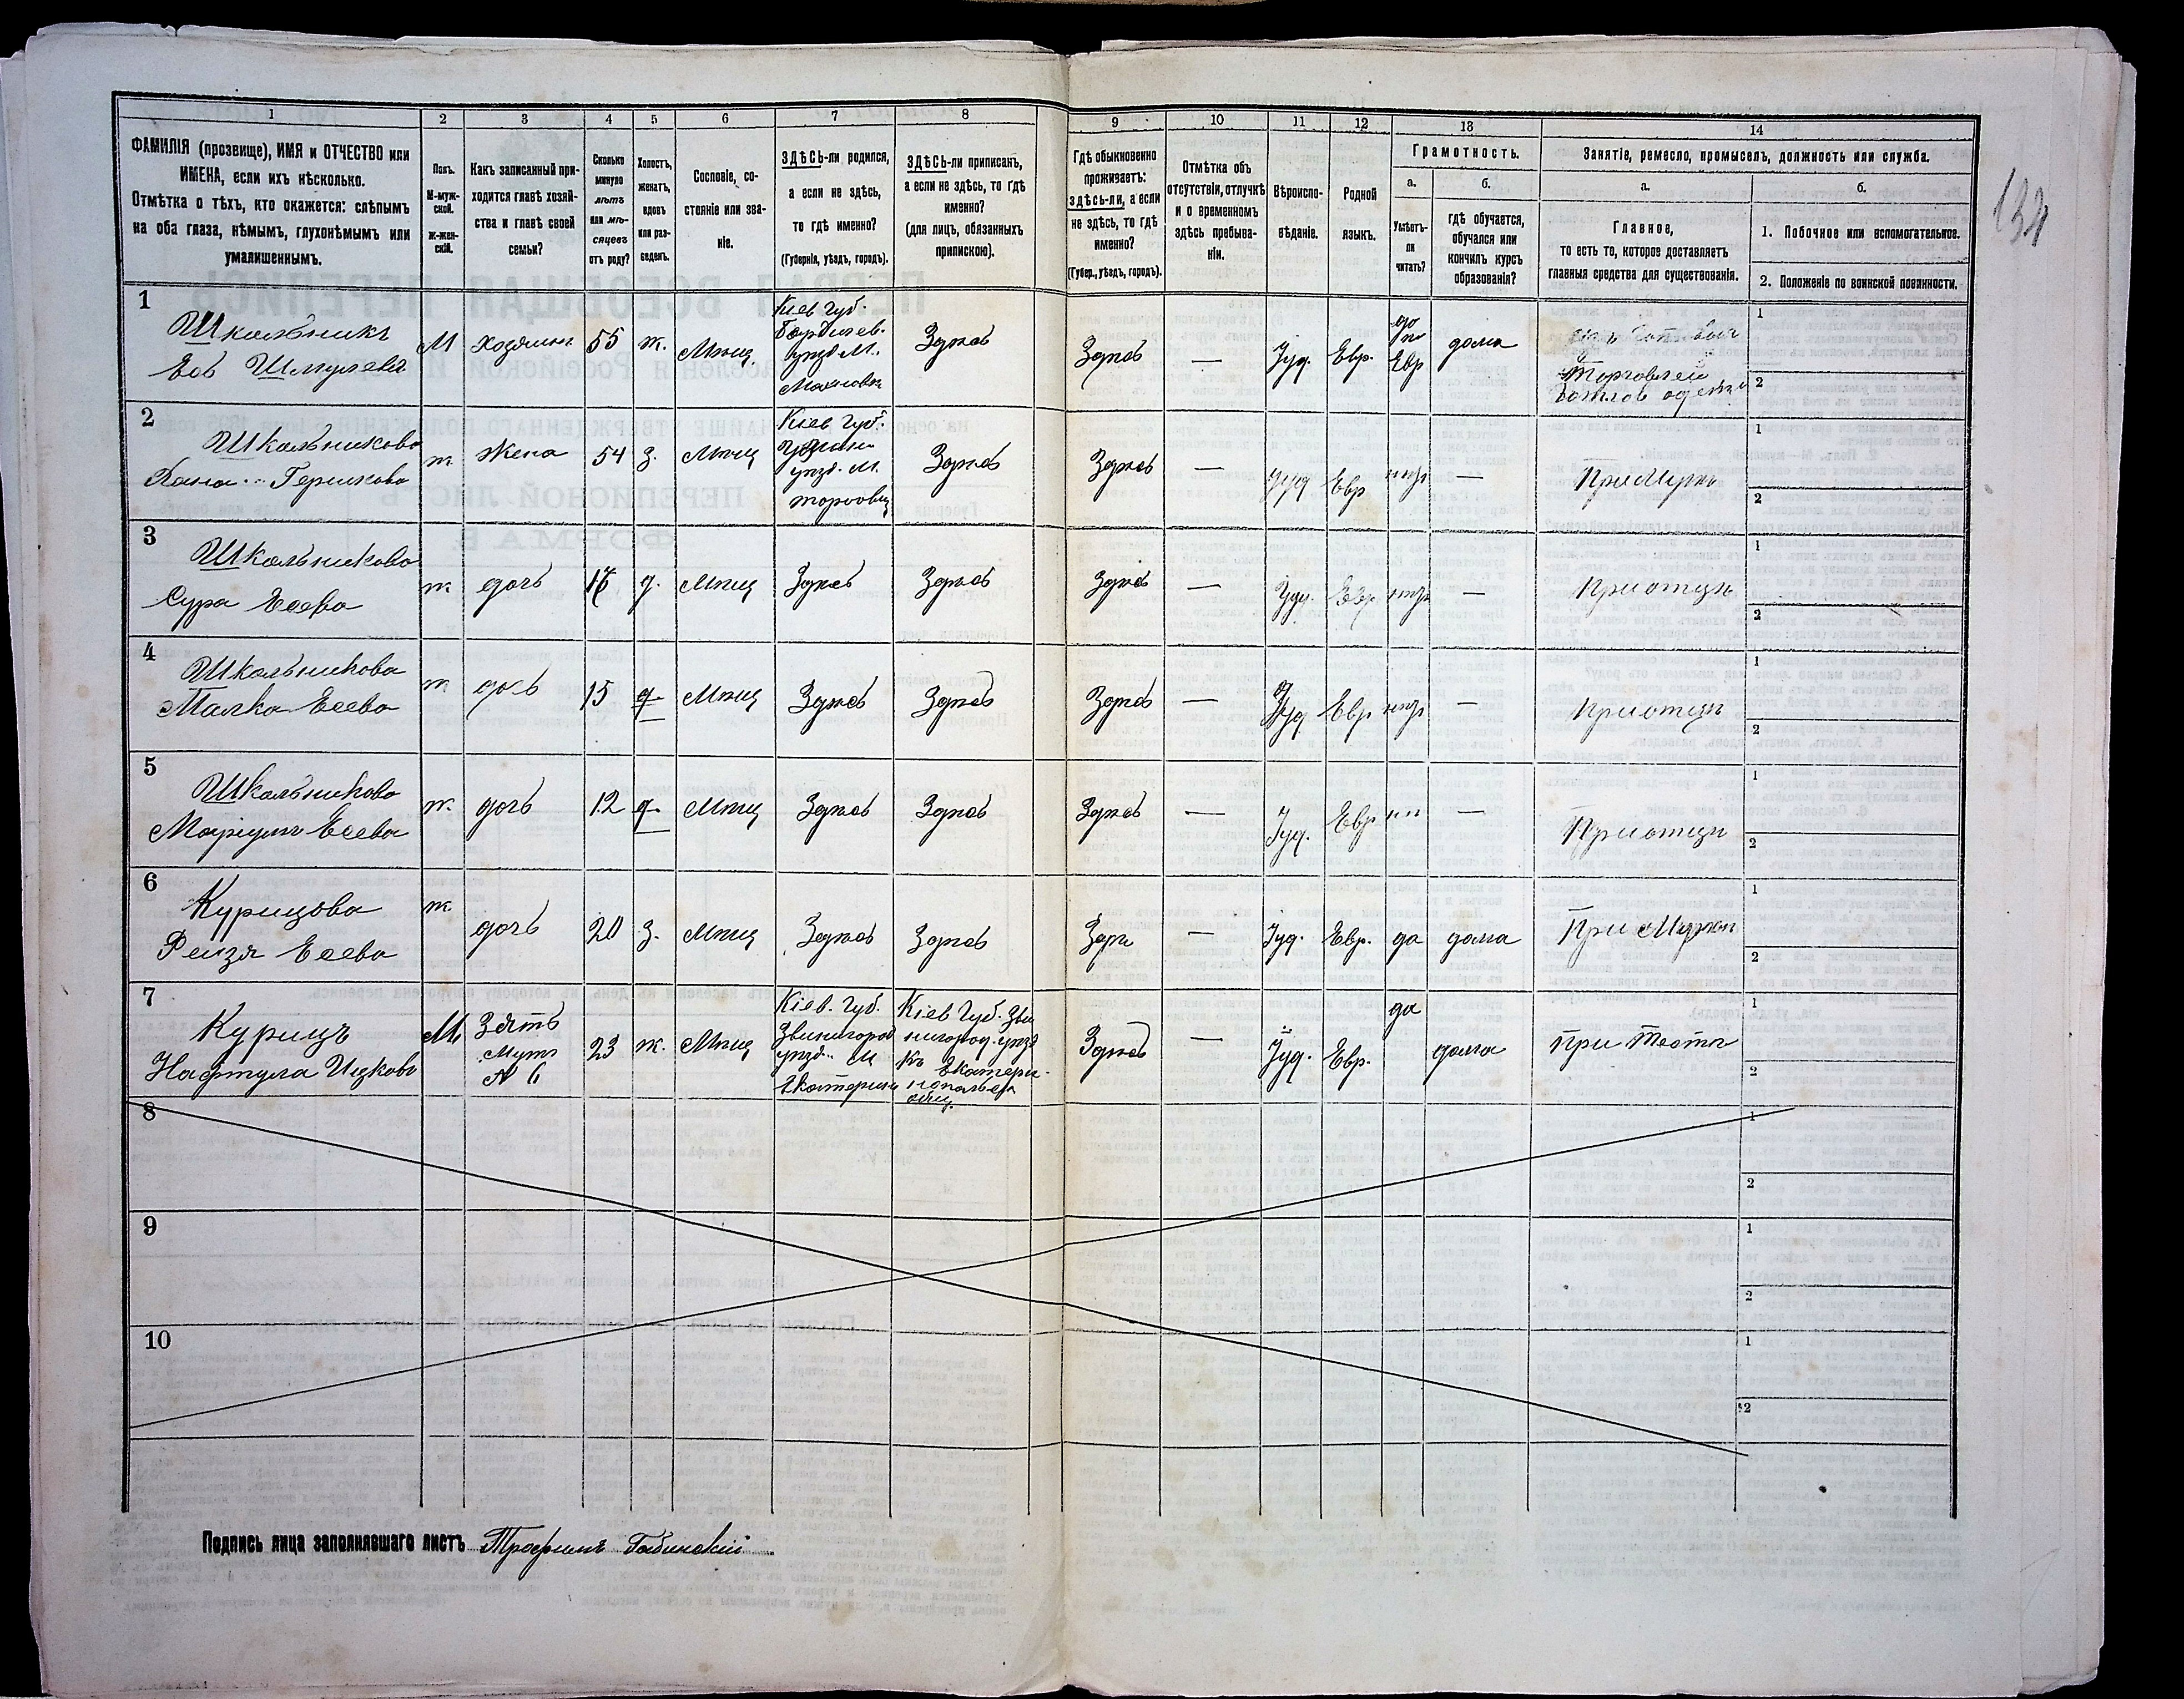 1
2
3
4
5
6
7
8
9
10
11
12
13
14
ФАМИЛІЯ (прозвище), ИМЯ и ОТЧЕСТВО или
ИМЕНА, если ихъ нѣсколько.
Отмѣтка о тѣхъ, кто окажется: слѣпымъ
на оба глаза, нѣмымъ, глухонѣмымъ или
умалишеннымъ.
Полъ.
М-муж-
ской.
ж-жен-
скій.
Какъ записанный при-
ходится главѣ хозяй-
ства и главѣ своей
семьи?
Сколько
минуло
лѣтъ
или мѣ-
сяцевъ
отъ роду?
Холостъ,
женатъ,
вдовъ
или раз-
веденъ.
Сословіе, со-
стояніе или зва-
ніе.
ЗДѢСЬ-ли родился,
а если не здѣсь,
то гдѣ именно?
(Губернія, уѣздъ, городъ).
ЗДѢСЬ-ли приписанъ,
а если не здѣсь, то гдѣ
именно?
(для лицъ, обязанныхъ
припискою).
Гдѣ обыкновенно
проживаетъ:
здѣсь-ли, а если
не здѣсь, то гдѣ
именно?
(Губер., уѣздъ, городъ).
Отмѣтка объ
отсутствіи, отлучкѣ
и о временномъ
здѣсь пребыва-
ніи.
Вѣроиспо-
вѣданіе.
Родной
языкъ.
Грамотность.
а.
Умѣетъ-
ли
читать?
б.
гдѣ обучается,
обучался или
кончилъ курсъ
образованія?
Занятіе, ремесло, промыселъ, должность или служба.
а.
Главное,
то есть то, которое доставляетъ
главныя средства для существованія.
б.
1. Побочное или вспомогательное.
2. Положеніе по воинской повинности.
1
Школьникъ
Еов Шмулевъ
М
хозяинъ
55
ж.
Мѣщ.
Кіев. Губ.
Бердичев.
уѣзд. М.
Махновка
Здѣсь
Здѣсь
—
Іуд.
Евр.
да
по
Евр
дома
Торговлей
1
2
2
Школьникова
Хана Гершкова
ж.
жена
54
з.
Мѣщ
Кіев. Губ.
уѣзд. М.
Торговиц
Здѣсь
Здѣсь
—
Іуд
Евр
нѣтъ
—
При Мужѣ
1
2
3
Школьникова
Сура Есева
ж.
дочь
д.
Мѣщ
Здѣсь
Здѣсь
Здѣсь
—
Іуд.
Евр
нѣтъ
—
При отцѣ
1
2
4
Школьникова
Малка Есева
ж.
дочь
15
д
Мѣщ
Здѣсь
Здѣсь
Здѣсь
—
Іуд
Евр
нѣтъ
—
При отцѣ
1
2
5
Школьникова
Маріумъ Есева
ж.
дочь
12
д.
Мѣщ
Здѣсь
Здѣсь
Здѣсь
—
Іуд.
Евр
—
При отцѣ
1
2
6
Курицова
Рейзя Есева
ж.
дочь
20
з.
Мѣщ
Здѣсь
Здѣсь
—
Іуд.
Евр.
да
дома
При Мужѣ
1
2
7
Курицъ
Нафтула Ицковъ
М
Зять
Мужъ
№ 6
23
ж.
Мѣщ
Кіев. Губ.
Звинигород
уѣзд. М
Екатерин
Кіев Губ. Зви
нигород. уѣзд
къ Екатери-
нопольск
общ.
Здѣсь
—
Іуд.
Евр.
да
дома
при тестѣ
1
2
8
1
2
9
1
2
10
1
2
Подпись лица заполнявшаго листъ Трофимъ Габинскій